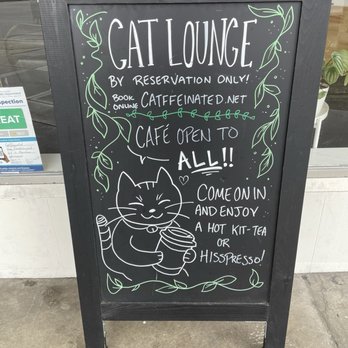 CAT LOUNGE
BY RESERVATION ONLY!
BOOK ONLINE CATFFEINATED.NET
CAFÉ OPEN TO
ALL!!
COME ON IN
AND ENJOY
A HOT KIT-TEA
OR
HISSPRESSO!
spection
EAT